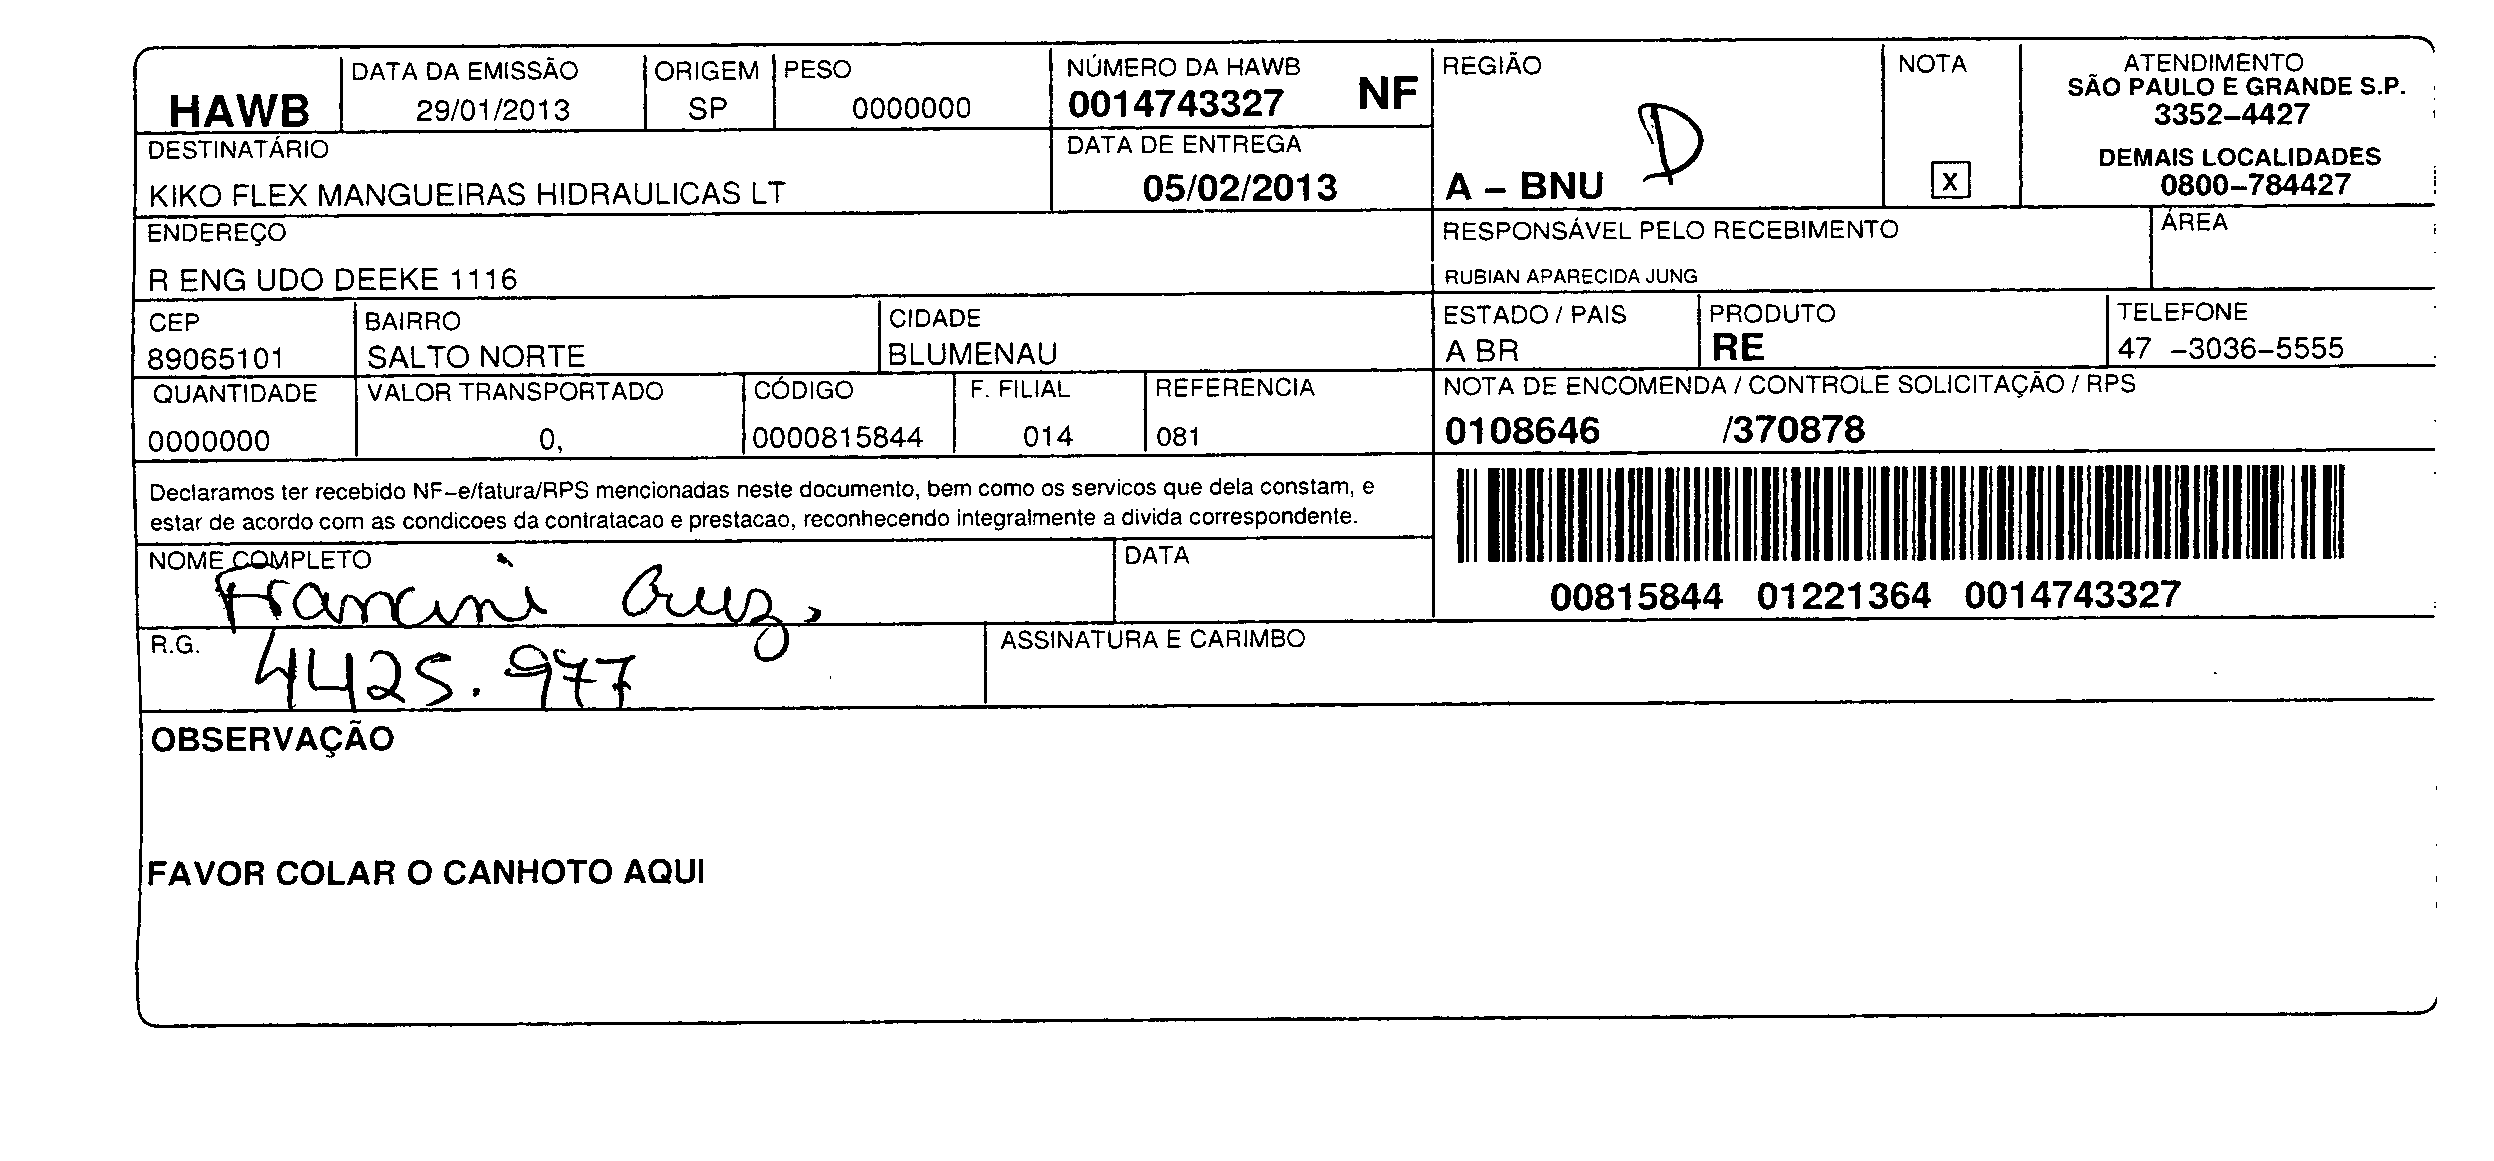 HAWB
DATA DA EMISSÃO
29/01/2013
ORIGEM
SP
PESO
0000000
NÚMERO DA HAWB
0014743327 NF
REGIÃO
A – BNU
D
NOTA
X
ATENDIMENTO
SÃO PAULO E GRANDE S.P.
3352–4427
DEMAIS LOCALIDADES
0800–784427
DESTINATÁRIO
KIKO FLEX MANGUEIRAS HIDRAULICAS LT
DATA DE ENTREGA
05/02/2013
ENDEREÇO
R ENG UDO DEEKE 1116
RESPONSÁVEL PELO RECEBIMENTO
RUBIAN APARECIDA JUNG
ÁREA
CEP
89065101
BAIRRO
SALTO NORTE
CIDADE
BLUMENAU
ESTADO / PAIS
A BR
PRODUTO
RE
TELEFONE
47 –3036–5555
QUANTIDADE
0000000
VALOR TRANSPORTADO
0,
CÓDIGO
0000815844
F. FILIAL
014
REFERENCIA
081
NOTA DE ENCOMENDA / CONTROLE SOLICITAÇÃO / RPS
0108646 /370878
Declaramos ter recebido NF–e/fatura/RPS mencionadas neste documento, bem como os servicos que dela constam, e
estar de acordo com as condicoes da contratacao e prestacao, reconhecendo integralmente a divida correspondente.
00815844 01221364 0014743327
NOME COMPLETO
Francini Cruz,
DATA
R.G.
4425.977
ASSINATURA E CARIMBO
OBSERVAÇÃO
FAVOR COLAR O CANHOTO AQUI